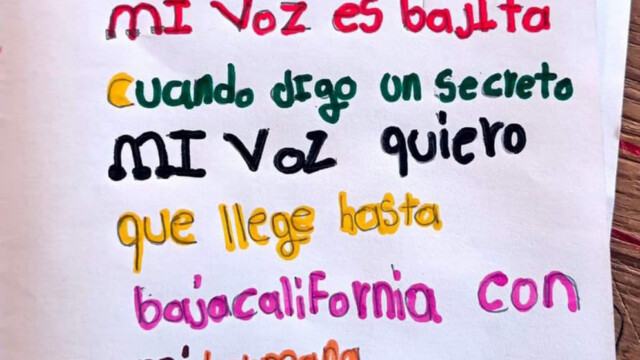 MI VOZ es bajita
cuando digo un secreto
MI VOZ quiero
que llege hasta
bajacalifornia con
mi hermana